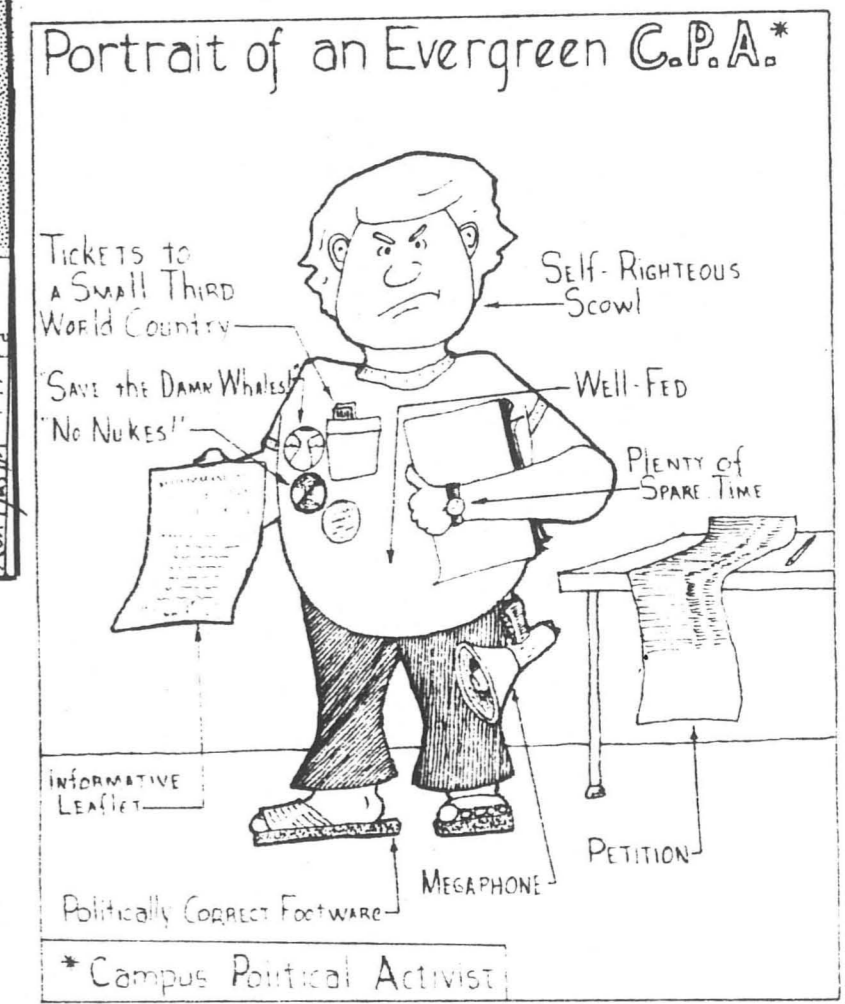 Portrait of an Evergreen C.P.A.*
Tickets to
a Small Third
World Country
"Save the Damn Whales!"
"No Nukes!"
Self-Righteous
Scowl
Well-Fed
Plenty of
Spare Time
Informative
Leaflet
Politically Correct Footware
Megaphone
Petition
* Campus Political Activist